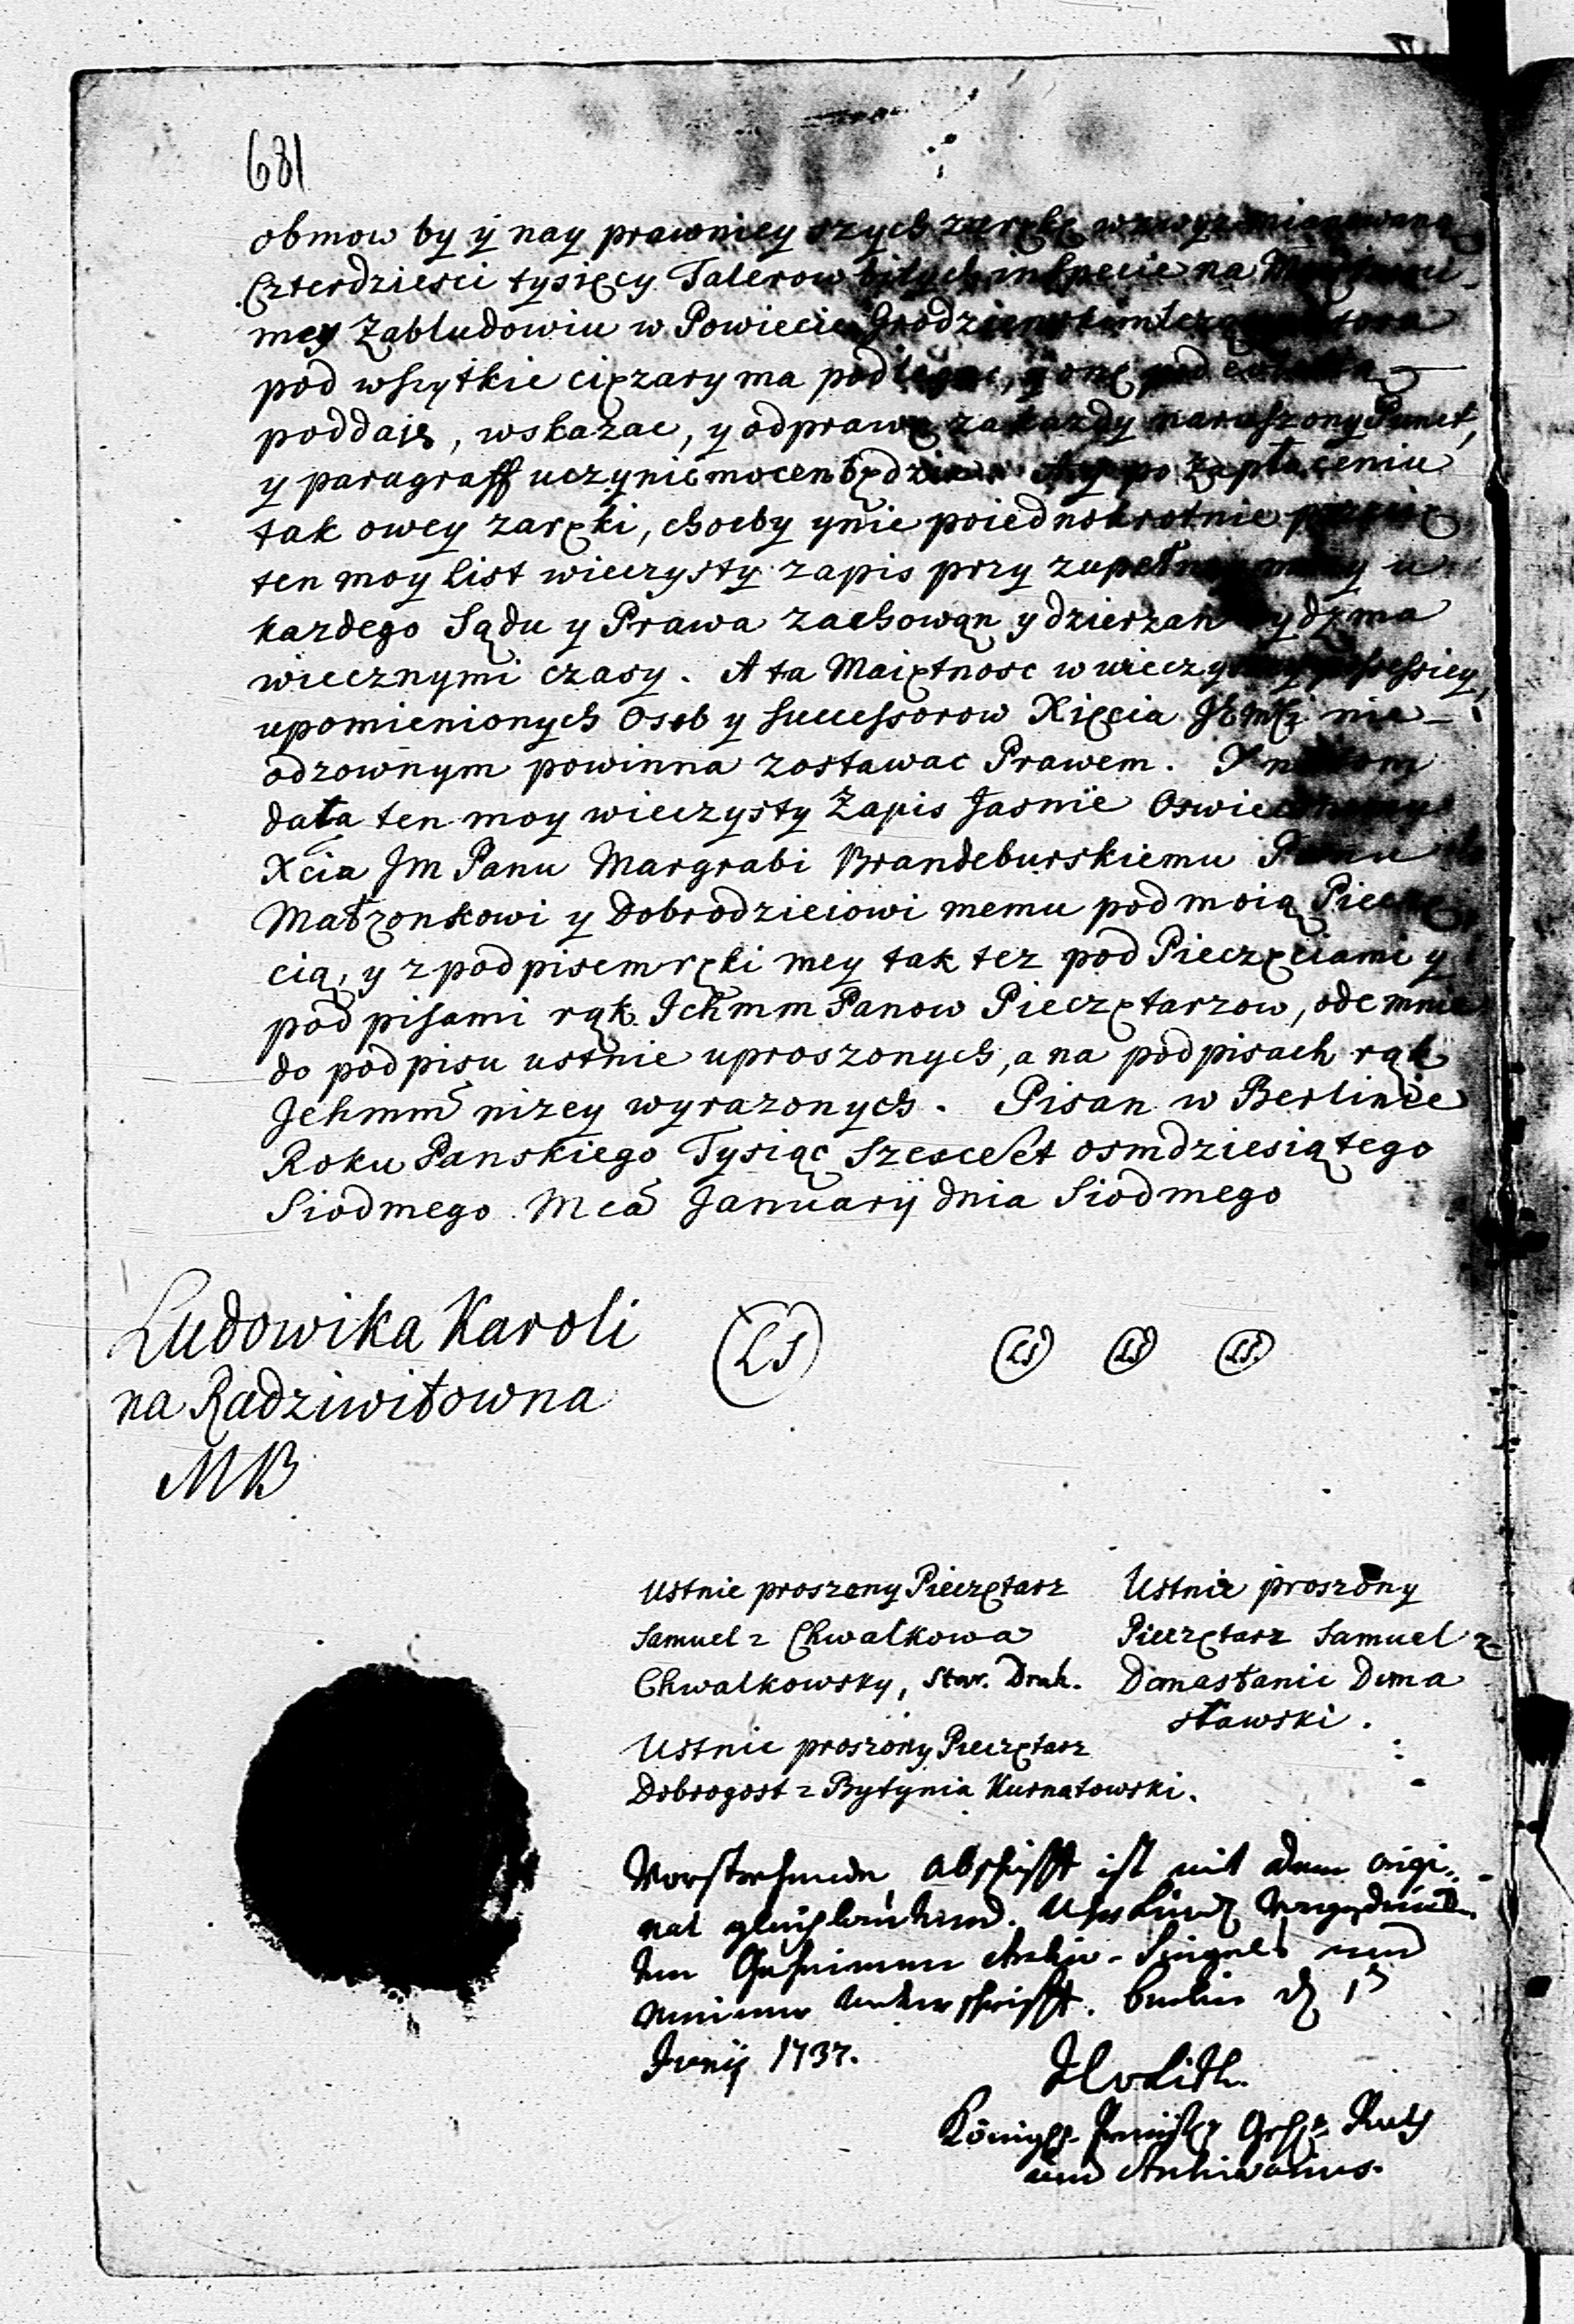 681
obmow by y nay prawniey szych zarękę wzwyz mianowaną
Czterdziesci tysięcy Talerow bitych in specie na
mey Zabludowiu w Powiecie Grodzienskim
pod wszytkie cięzary ma podlegac, y onę pod
poddaię, wskazac, y odprawę za kazdy naruszony Punct,
y paragraff uczynic mocen będzie. A y po Zapłaceniu
tak owey zaręki, choćby y nie poiednokrotnie
ten moy List wieczysty zapis przy zupełney mocy u
kazdego Sądu y Prawa zachowąn y dzierzan bydz ma
wiecznymi czasy. A ta Maiętnosc w wieczystey possessiey,
upomienionych Osob y Successorow Xięcia JEMCi nie-
odzownym powinna zostawac Prawem. Y na tom
dała ten moy wieczysty Zapis Jasnie Oswieconemu
Xcia Jm Panu Margrabi Brandeburskiemu Panu
Małzonkowi y Dobrodzieiowi memu pod moią Pieczę
cią, y z podpisem ręki mey tak tez pod Pieczęciami y
podpisami rąk Ichmm Panow Pieczętarzow, odemnie
do podpisu ustnie uproszonych, a na podpisach rąk
Jchmm nizey wyrazonych. Pisan w Berlinie
Roku Panskiego Tysiąc Szescset osmdziesiątego
Siodmego Mca Januarij dnia Siodmego
Ludowika Karoli
na Radziwiłowna
MB
(LS) (LS) (LS) (LS)
Ustnie proszeny Pieczętarz
Samuel z Chwalkowa
Chwalkowsky, Star. Drah.
Ustnie proszony
Pieczętarz Samuel z
Domasłanic Doma
sławski.
Ustnie proszony Pieczętarz
Dobrogost z Bytynia Kurnatowski.
Vorstehende Abschrifft ist mit dem origi-
nal gleichlautend. Uhrkundl. vorgedruck
ten Geheimen Archiv-Siegels und
meiner Unterschrifft. Berlin d.
Junij 1737.
Königl. Preuß. Geh. Rath
und Archivarius.